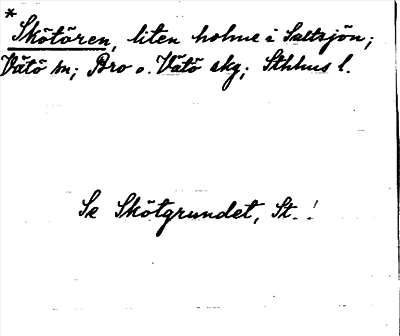 *
Skötören, liten holme i Saltsjön;
Vätö sn; Bro o. Vätö skg; Sthlms l.
Se Skötgrundet, St.!